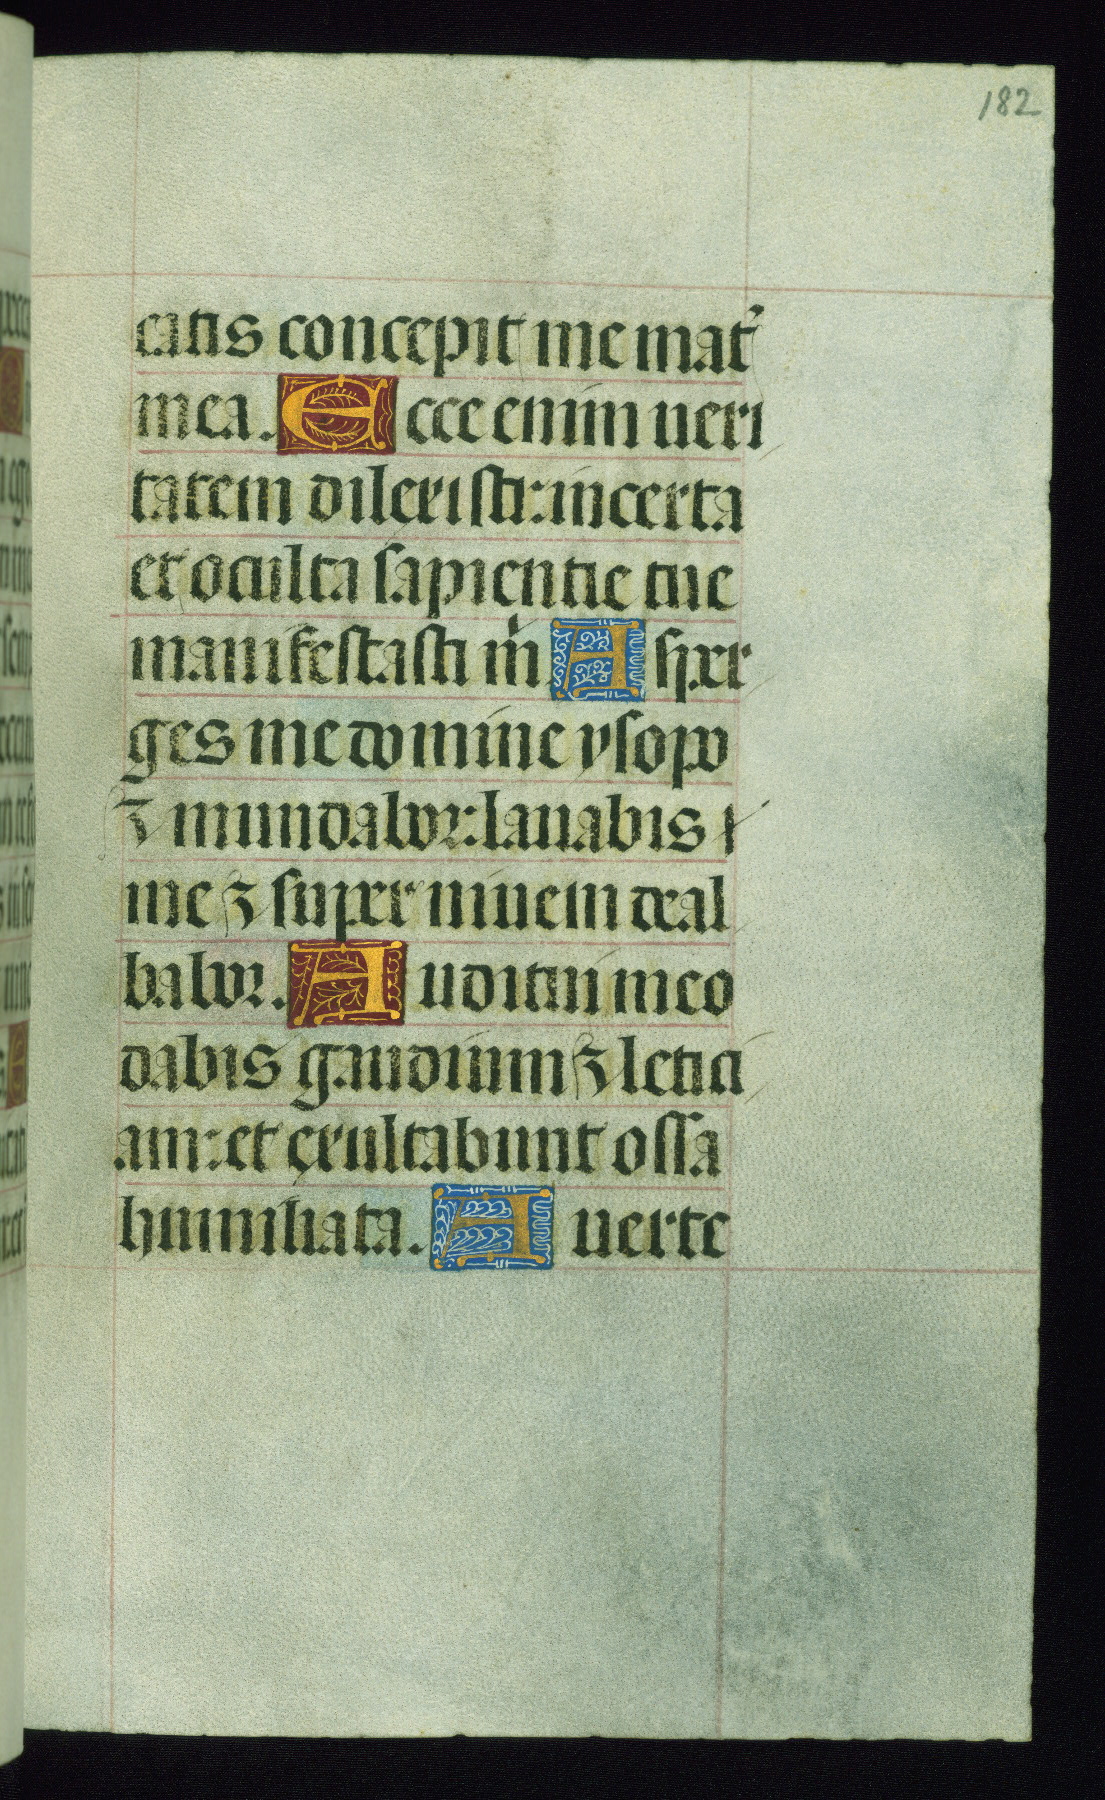 182
catis concepit me mat̉
mea. Ecce enim ueri
tatem dilexisti: incerta
et oculta sapientie tue
manifestasti m̍ Asper
ges me domine ysopo
⁊ mundabor: lauabis
me ⁊ super niuem deal
babor. Auditui meo
dabis gaudium ⁊ letici
am: et exultabunt ossa
humiliata. Auerte